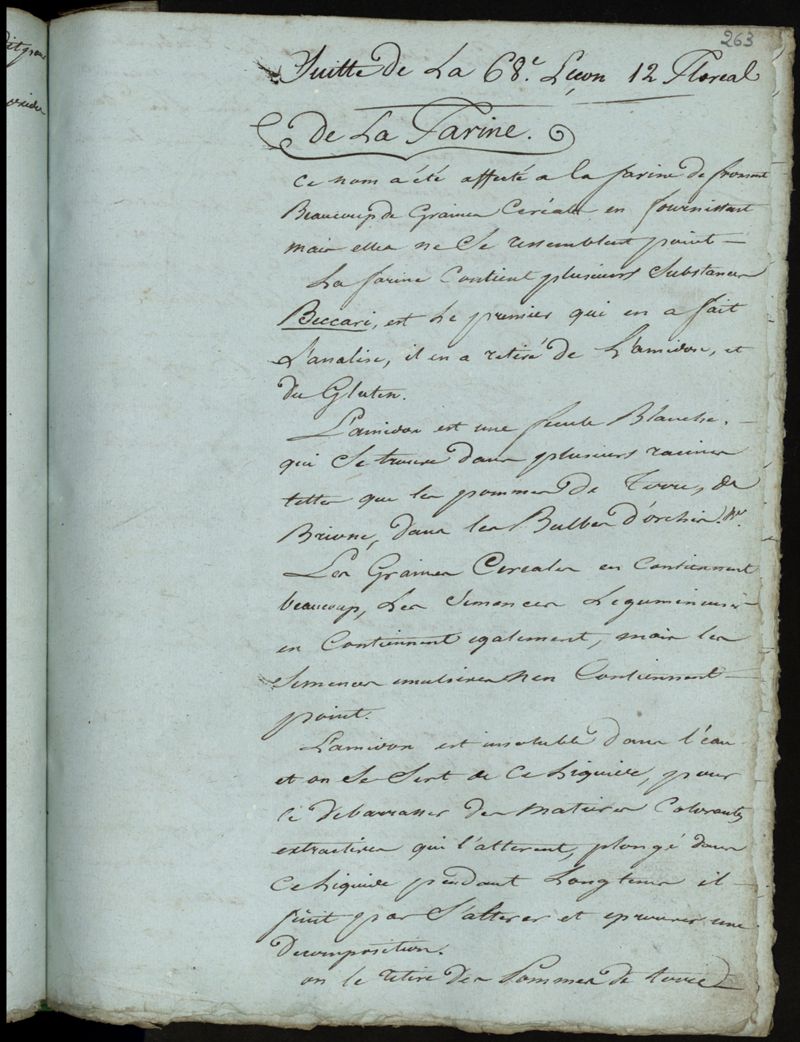 263
Suitte de La 68.e Leçon 12 Floreal
De La Farine.
Ce nom a été affecté a la farine de froment
Beaucoup de Graines Céréales en fournissent
mais elles ne Se ressemblent point —
La farine Contient plusieurs Substances
Beccari, est Le premier qui en a fait
L'analise, il en a retiré de L'amidon, et
du Gluten.
L'amidon est une fecule Blanche,
qui Se trouve dans plusieurs racines
telles que les pommes De Terre, de
Brione, dans les Bulbes d'orchis. &c.
Les Graines Cereales en Contiennent
beaucoup, Les Semences Legumineuses
en Contiennent egalement, mais les
Semences emulsives n'en Contiennent —
point.
L'amidon est insoluble dans l'eau
et on Se Sert de Ce Liquide, pour
Le débarrasser des matieres Colorantes
extractives qui l'alterent, plongé dans
Ce Liquide pendant Longtems il —
finit par S'alterer et eprouver une
Decomposition.
on le retire des Pommes de terre